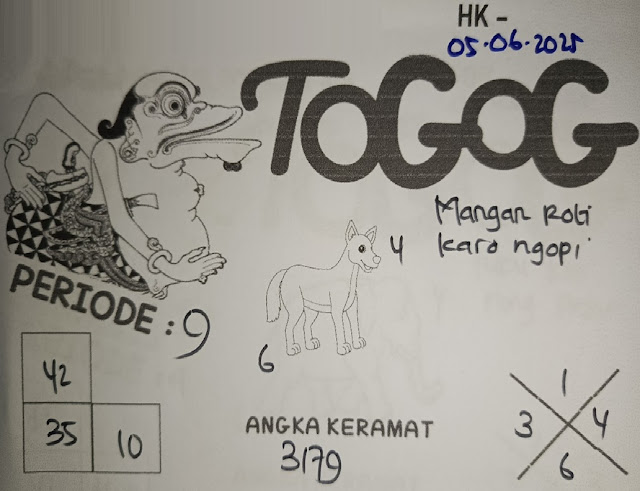 HK -
05.06.2025
TOGOG
Mangan Roti
karo ngopi
4
PERIODE : 9
6
42
35 10
ANGKA KERAMAT
3179
1
3 4
6